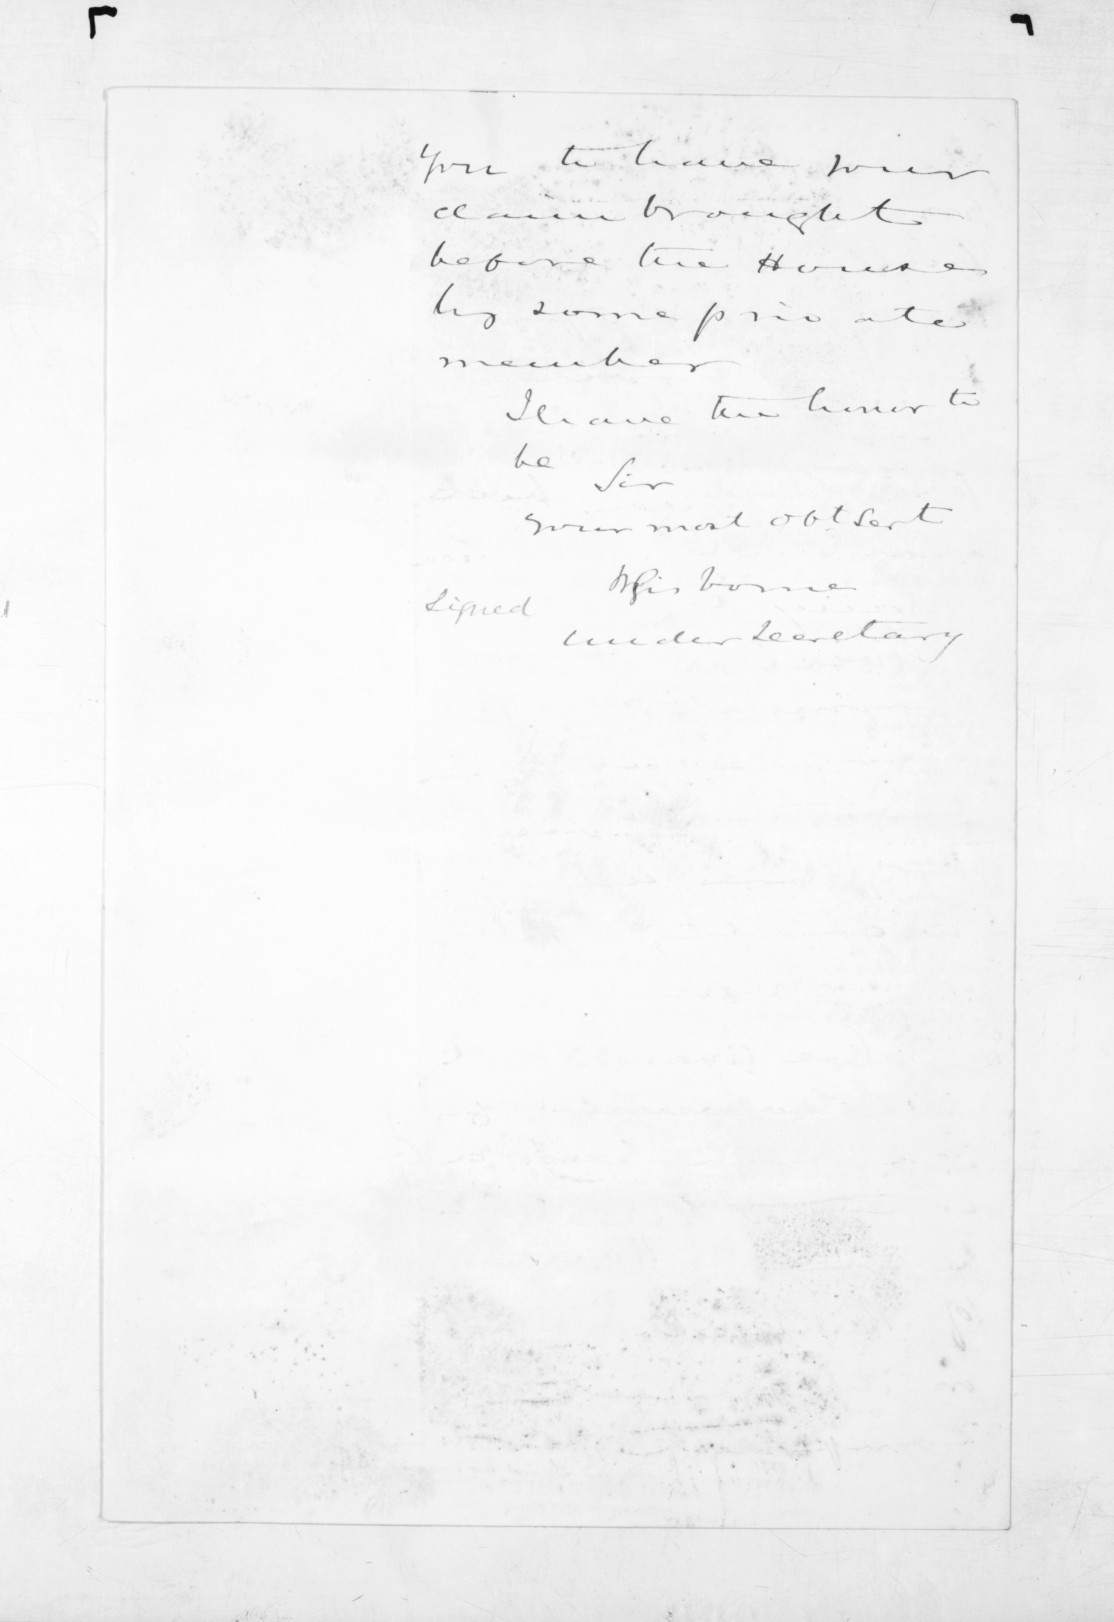 You to have your
claim brought
before the House
by some private
member
I have the honor to
be
Sir
your most obt Sert
Signed WGisborne
Under Secretary